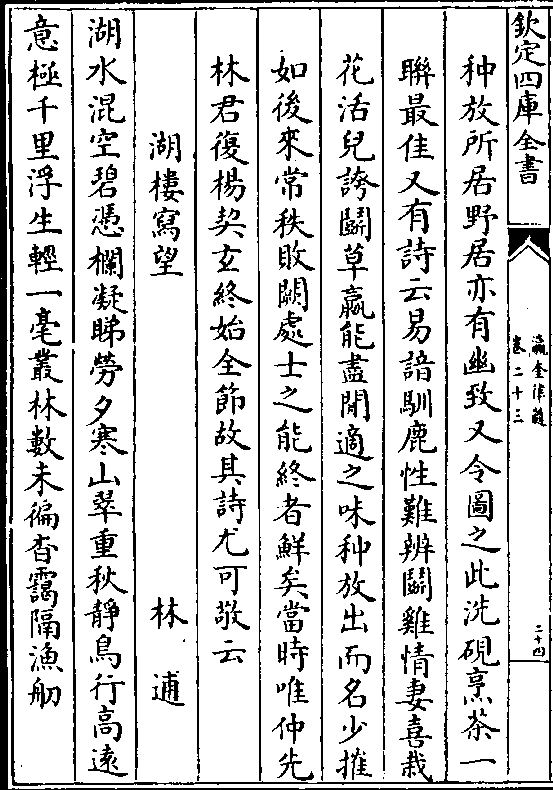 欽定四庫全書
瀛奎律髓
卷二十三
二十四
种放所居野居亦有幽致又令圖之此洗硯烹茶一
聯最佳又有詩云易諳馴鹿性難辨鬬雞情妻喜栽
花活兒誇鬬草贏能盡閒適之味种放出而名少摧
如後來常秩敗闕處士之能終者鮮矣當時唯仲先
林君復楊契玄終始全節故其詩尤可敬云
湖樓寫望 林逋
湖水混空碧憑欄凝睇勞夕寒山翠重秋靜鳥行高遠
意極千里浮生輕一毫叢林數未徧杳靄隔漁舠